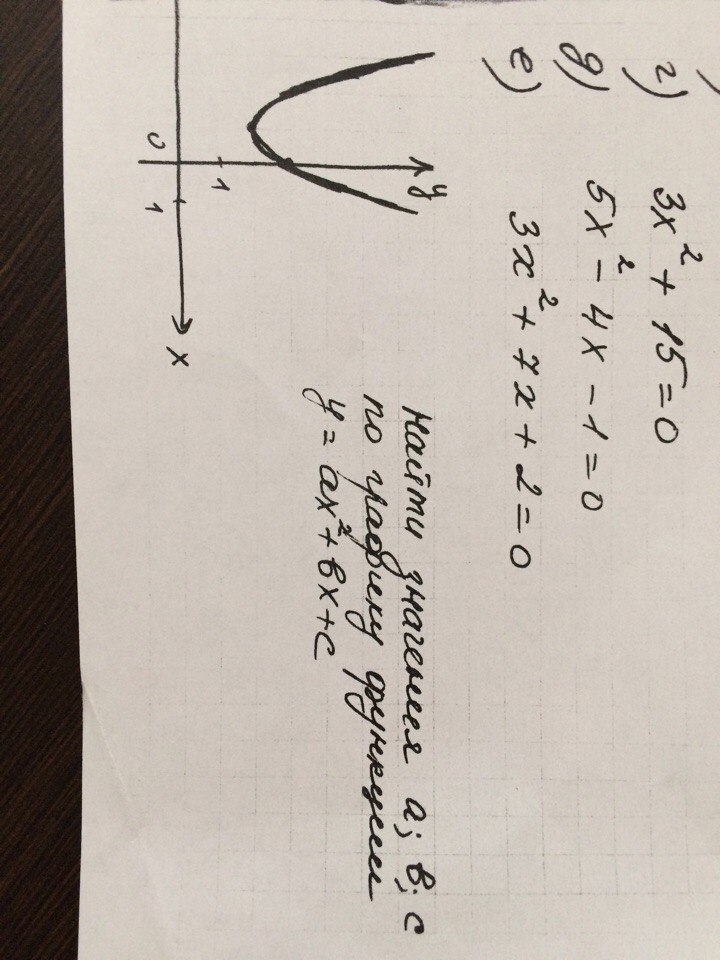 г) 3x² + 15 = 0
д) 5x² - 4x - 1 = 0
е) 3x² + 7x + 2 = 0
y
1
0
1
x
Найти значения a; в; c
по графику функции
y = ax² + вx + c